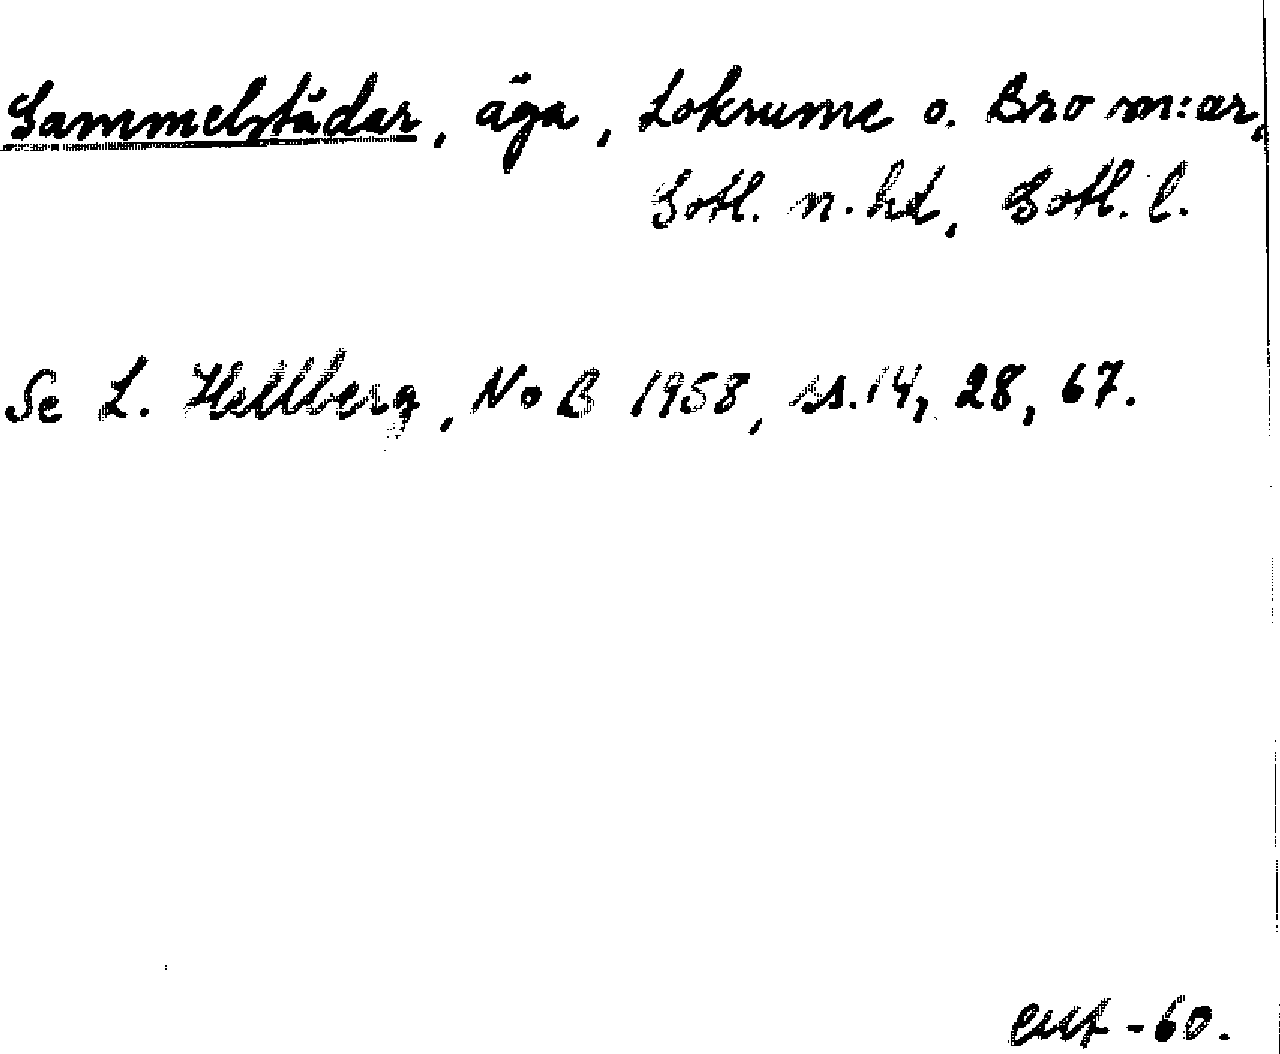 Sammelstädar, äga, Lokrume o. Bro m:ar,
Gotl. n. hd, Gotl. l.
Se L. Hellberg, NoB 1958, ss. 14, 28, 67.
-60.